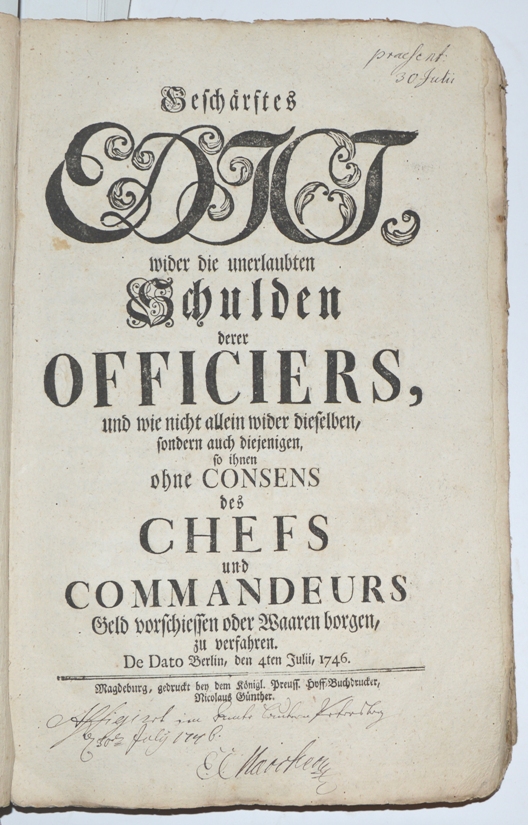 praesent:
30 Julii
Geschärftes
EDICT,
wider die unerlaubten
Schulden
derer
OFFICIERS,
und wie nicht allein wider dieselben,
sondern auch diejenigen,
so ihnen
ohne CONSENS
des
CHEFS
und
COMMANDEURS
Geld vorschiessen oder Waaren borgen,
zu verfahren.
De Dato Berlin, den 4ten Julii, 1746.
Magdeburg, gedruckt bey dem Königl. Preuss. Hoff-Buchdrucker,
Nicolaus Günther.
im
July 1746.